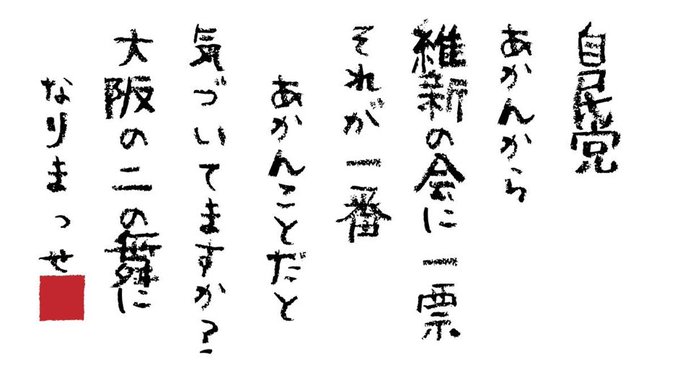 自民党
あかんから
維新の会に一票
それが一番
あかんことだと
気づいてますか？
大阪の二の舞に
なりまっせ